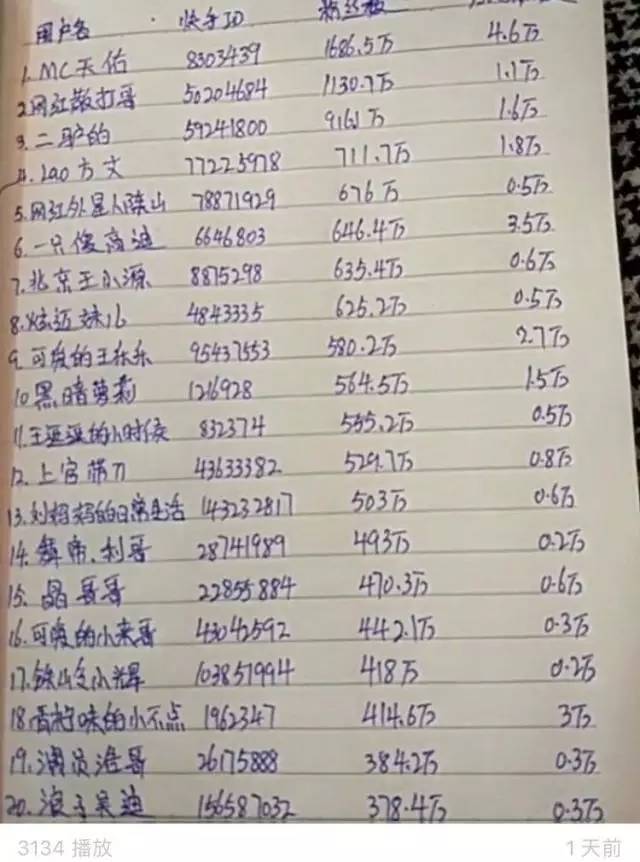 用户名 快手ID 粉丝数
1. MC天佑 8303439 1686.5万 4.6万
2. 网红散打哥 50204684 1130.7万 1.1万
3. 二驴的 59241800 916.1万 1.6万
4. lao方丈 77225978 711.7万 1.8万
5. 网红外星人陈山 78871929 676万 0.5万
6. 一只傻高迪 6646803 646.4万 3.5万
7. 北京王小源 8875298 635.4万 0.6万
8. 炫迈妹儿 4843335 625.2万 0.5万
9. 可爱的王乐乐 95437553 580.2万 2.7万
10. 黑暗萝莉 1216928 564.5万 1.5万
11. 王逗逗的小时候 832374 555.2万 0.5万
12. 上官带刀 43633382 529.7万 0.8万
13. 刘妈妈的日常生活 143232817 503万 0.6万
14. 辞帝.利哥 28741989 493万 0.2万
15. 晶哥哥 22855884 470.3万 0.6万
16. 可爱的小来哥 43042592 442.1万 0.3万
17. 铁山令小辉 103851994 418万 0.2万
18. 香柠味的小不点 1962347 414.6万 3万
19. 演员浩哥 26175888 384.2万 0.3万
20. 浪子吴迪 156587032 378.4万 0.3万
3134 播放 1 天前